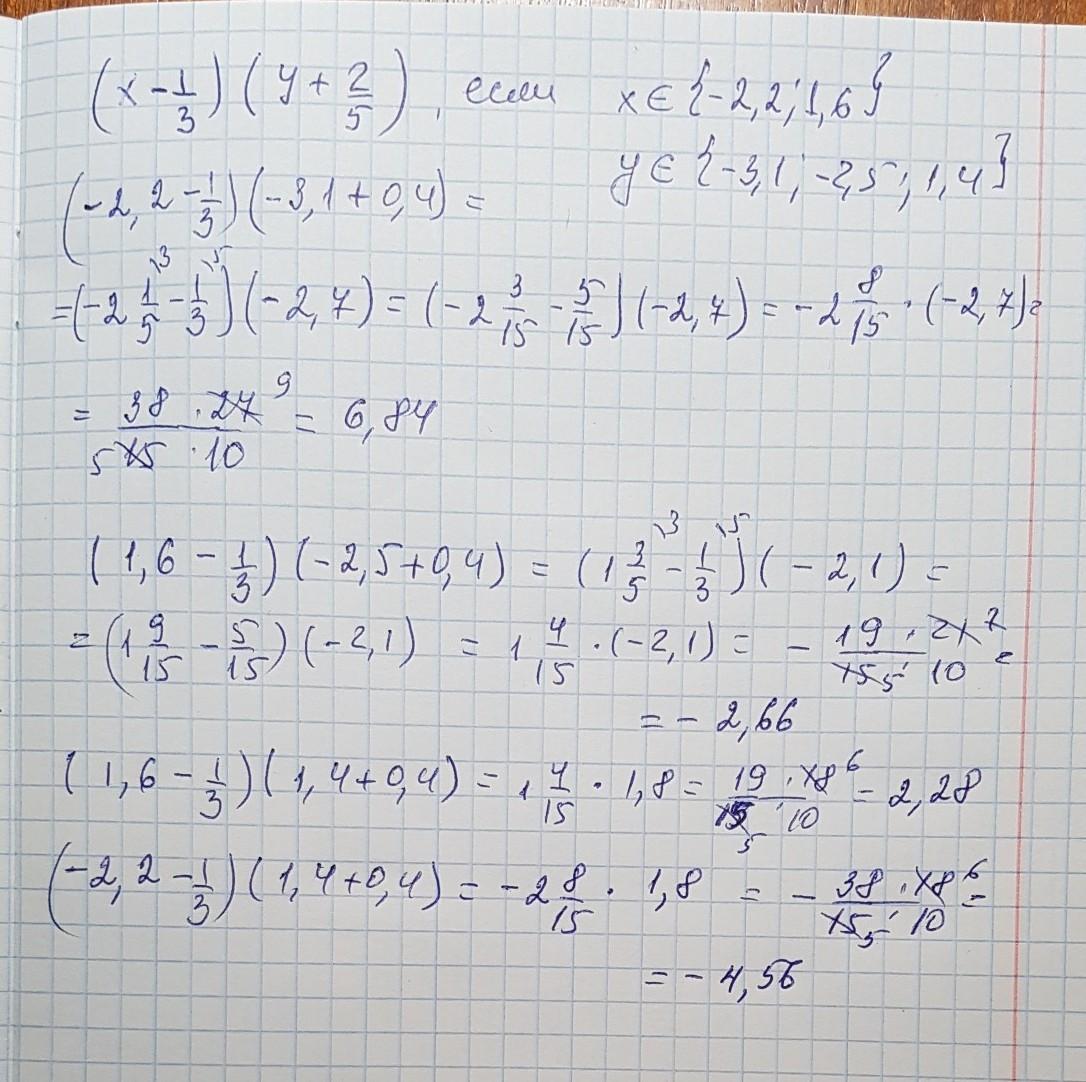 (x - 1/3) (y + 2/5), если x ∈ {-2,2; 1,6}
y ∈ {-3,1; -2,5; 1,4}
(-2,2 - 1/3)(-3,1 + 0,4) =
= (-2 1/5 \3 - 1/3 \5)(-2,7) = (-2 3/15 - 5/15)(-2,7) = -2 8/15 · (-2,7) =
= 38 · 27 9 / 5 15 · 10 = 6,84
(1,6 - 1/3)(-2,5 + 0,4) = (1 3/5 \3 - 1/3 \5)(-2,1) =
= (1 9/15 - 5/15)(-2,1) = 1 4/15 · (-2,1) = - 19 · 21 7 / 15 5 · 10 =
= - 2,66
(1,6 - 1/3)(1,4 + 0,4) = 1 4/15 · 1,8 = 19 · 18 6 / 15 5 · 10 = 2,28
(-2,2 - 1/3)(1,4 + 0,4) = -2 8/15 · 1,8 = - 38 · 18 6 / 15 5 · 10 =
= - 4,56